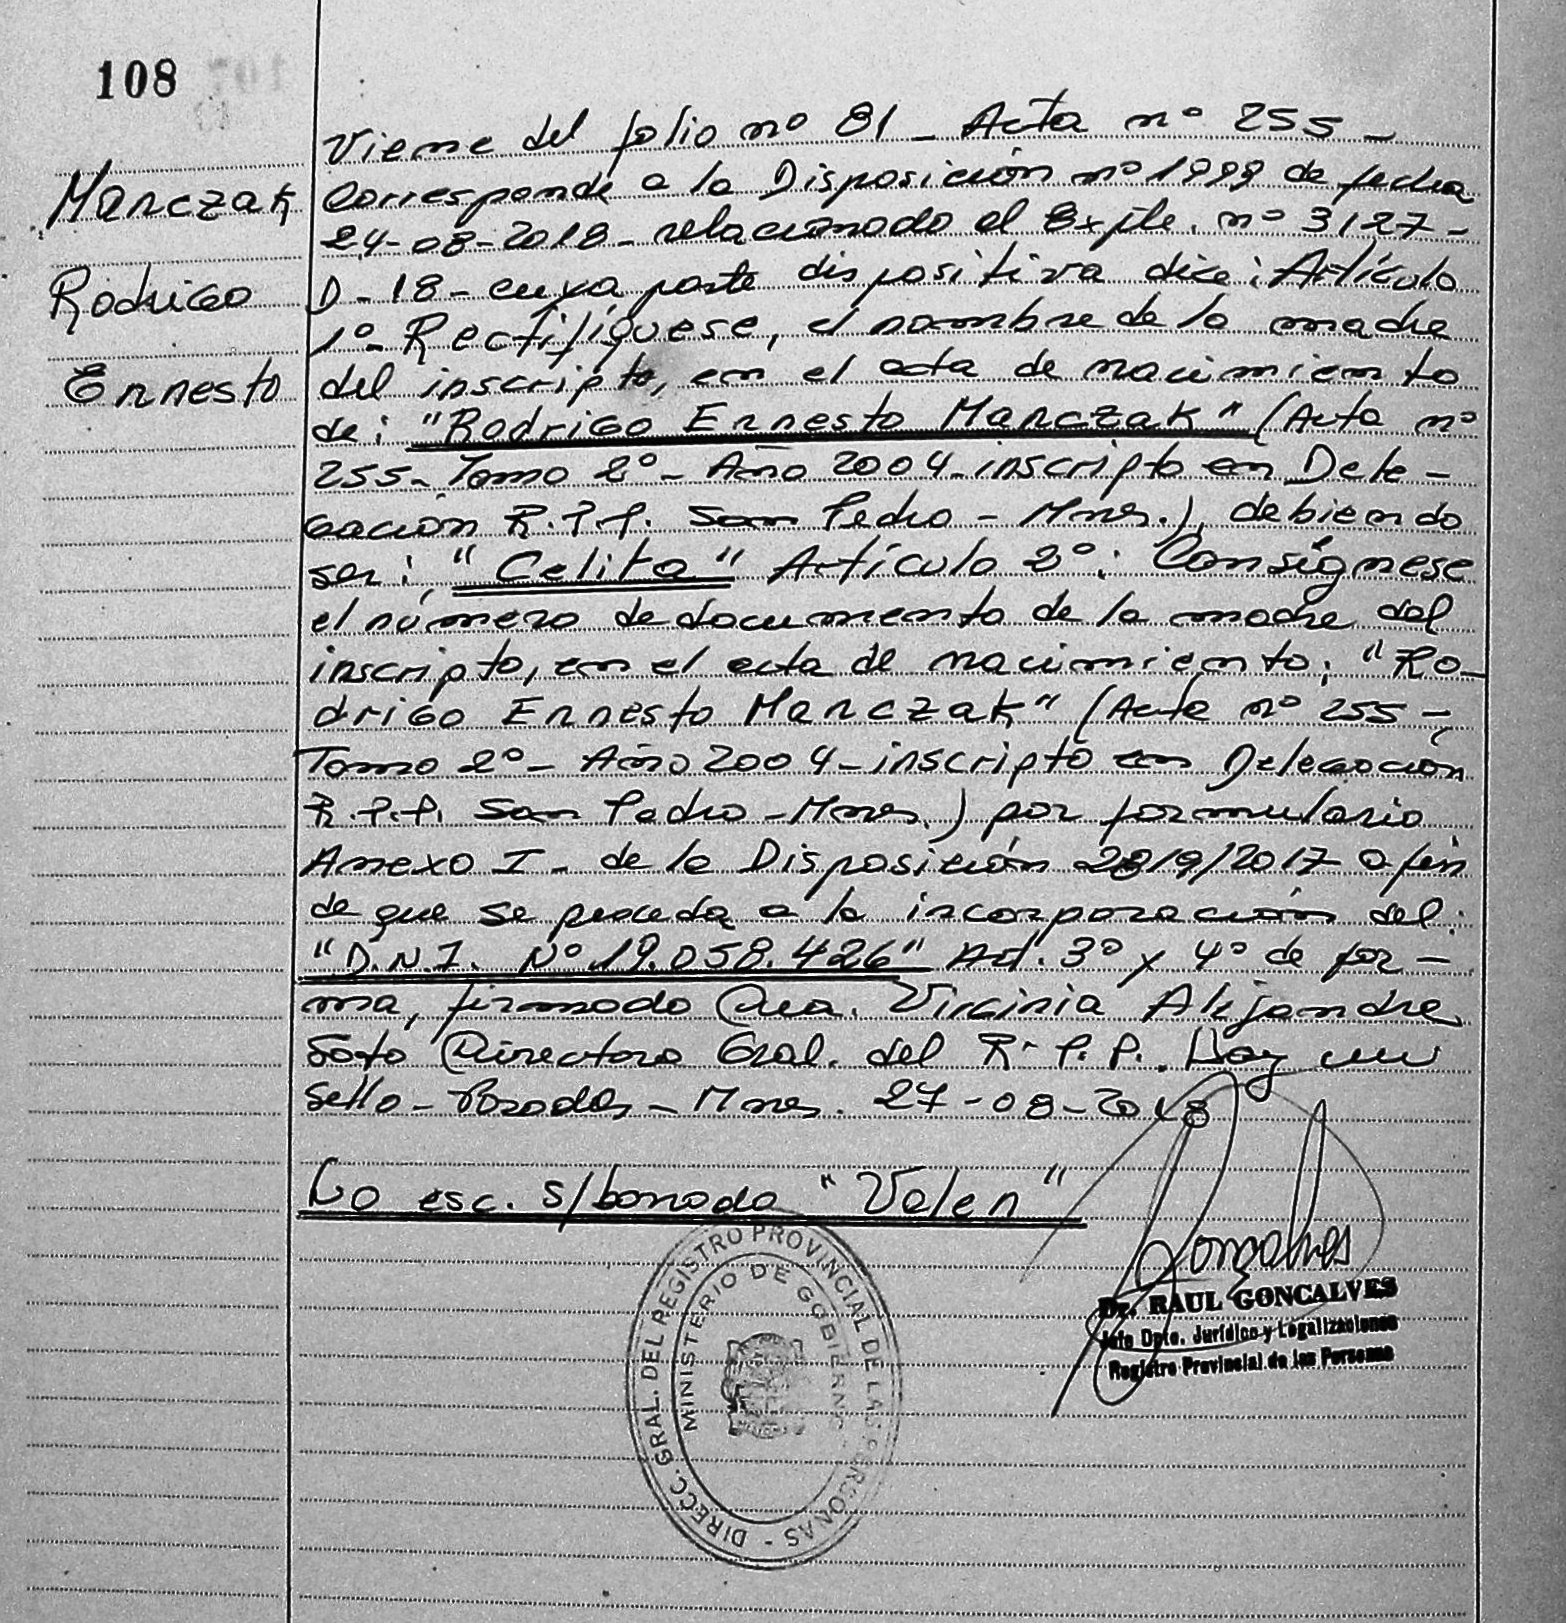 108
Marczak
Rodrigo
Ernesto
Viene del folio nº 81 - Acta nº 255 -
Corresponde a la Disposición nº 1999 de fecha
24-08-2018 - relacionado al Expte. nº 3127 -
D - 18 - cuya parte dispositiva dice: Artículo
1º - Rectifíquese, el nombre de la madre
del inscripto, en el acta de nacimiento
de: "Rodrigo Ernesto Marczak" (Acta nº
255 - Tomo 2º - Año 2004 - inscripto en Dele-
gación R.P.P. San Pedro - Mnes.), debiendo
ser: "Celita" Artículo 2º: Consígnese
el número de documento de la madre del
inscripto, en el acta de nacimiento: "Ro-
drigo Ernesto Marczak" (Acta nº 255 -
Tomo 2º - Año 2004 - inscripto en Delegación
R.P.P. San Pedro - Mnes.) por formulario
Anexo I - de la Disposición 2819/2017 a fin
de que se proceda a la incorporación del:
"D.N.I. Nº 19.058.426" Art. 3º y 4º de for-
ma, firmado Dra. Virginia Alejandra
Soto Directora Gral. del R.P.P. Hay un
sello - Posadas - Mnes. 27-08-2018
Lo esc. s/borrado "Valen"
DIRECC. GRAL. DEL REGISTRO PROVINCIAL DE LAS PERSONAS -
MINISTERIO DE GOBIERNO
Goncalves
Dr. RAUL GONCALVES
Jefe Dpto. Jurídico y Legalizaciones
Registro Provincial de las Personas